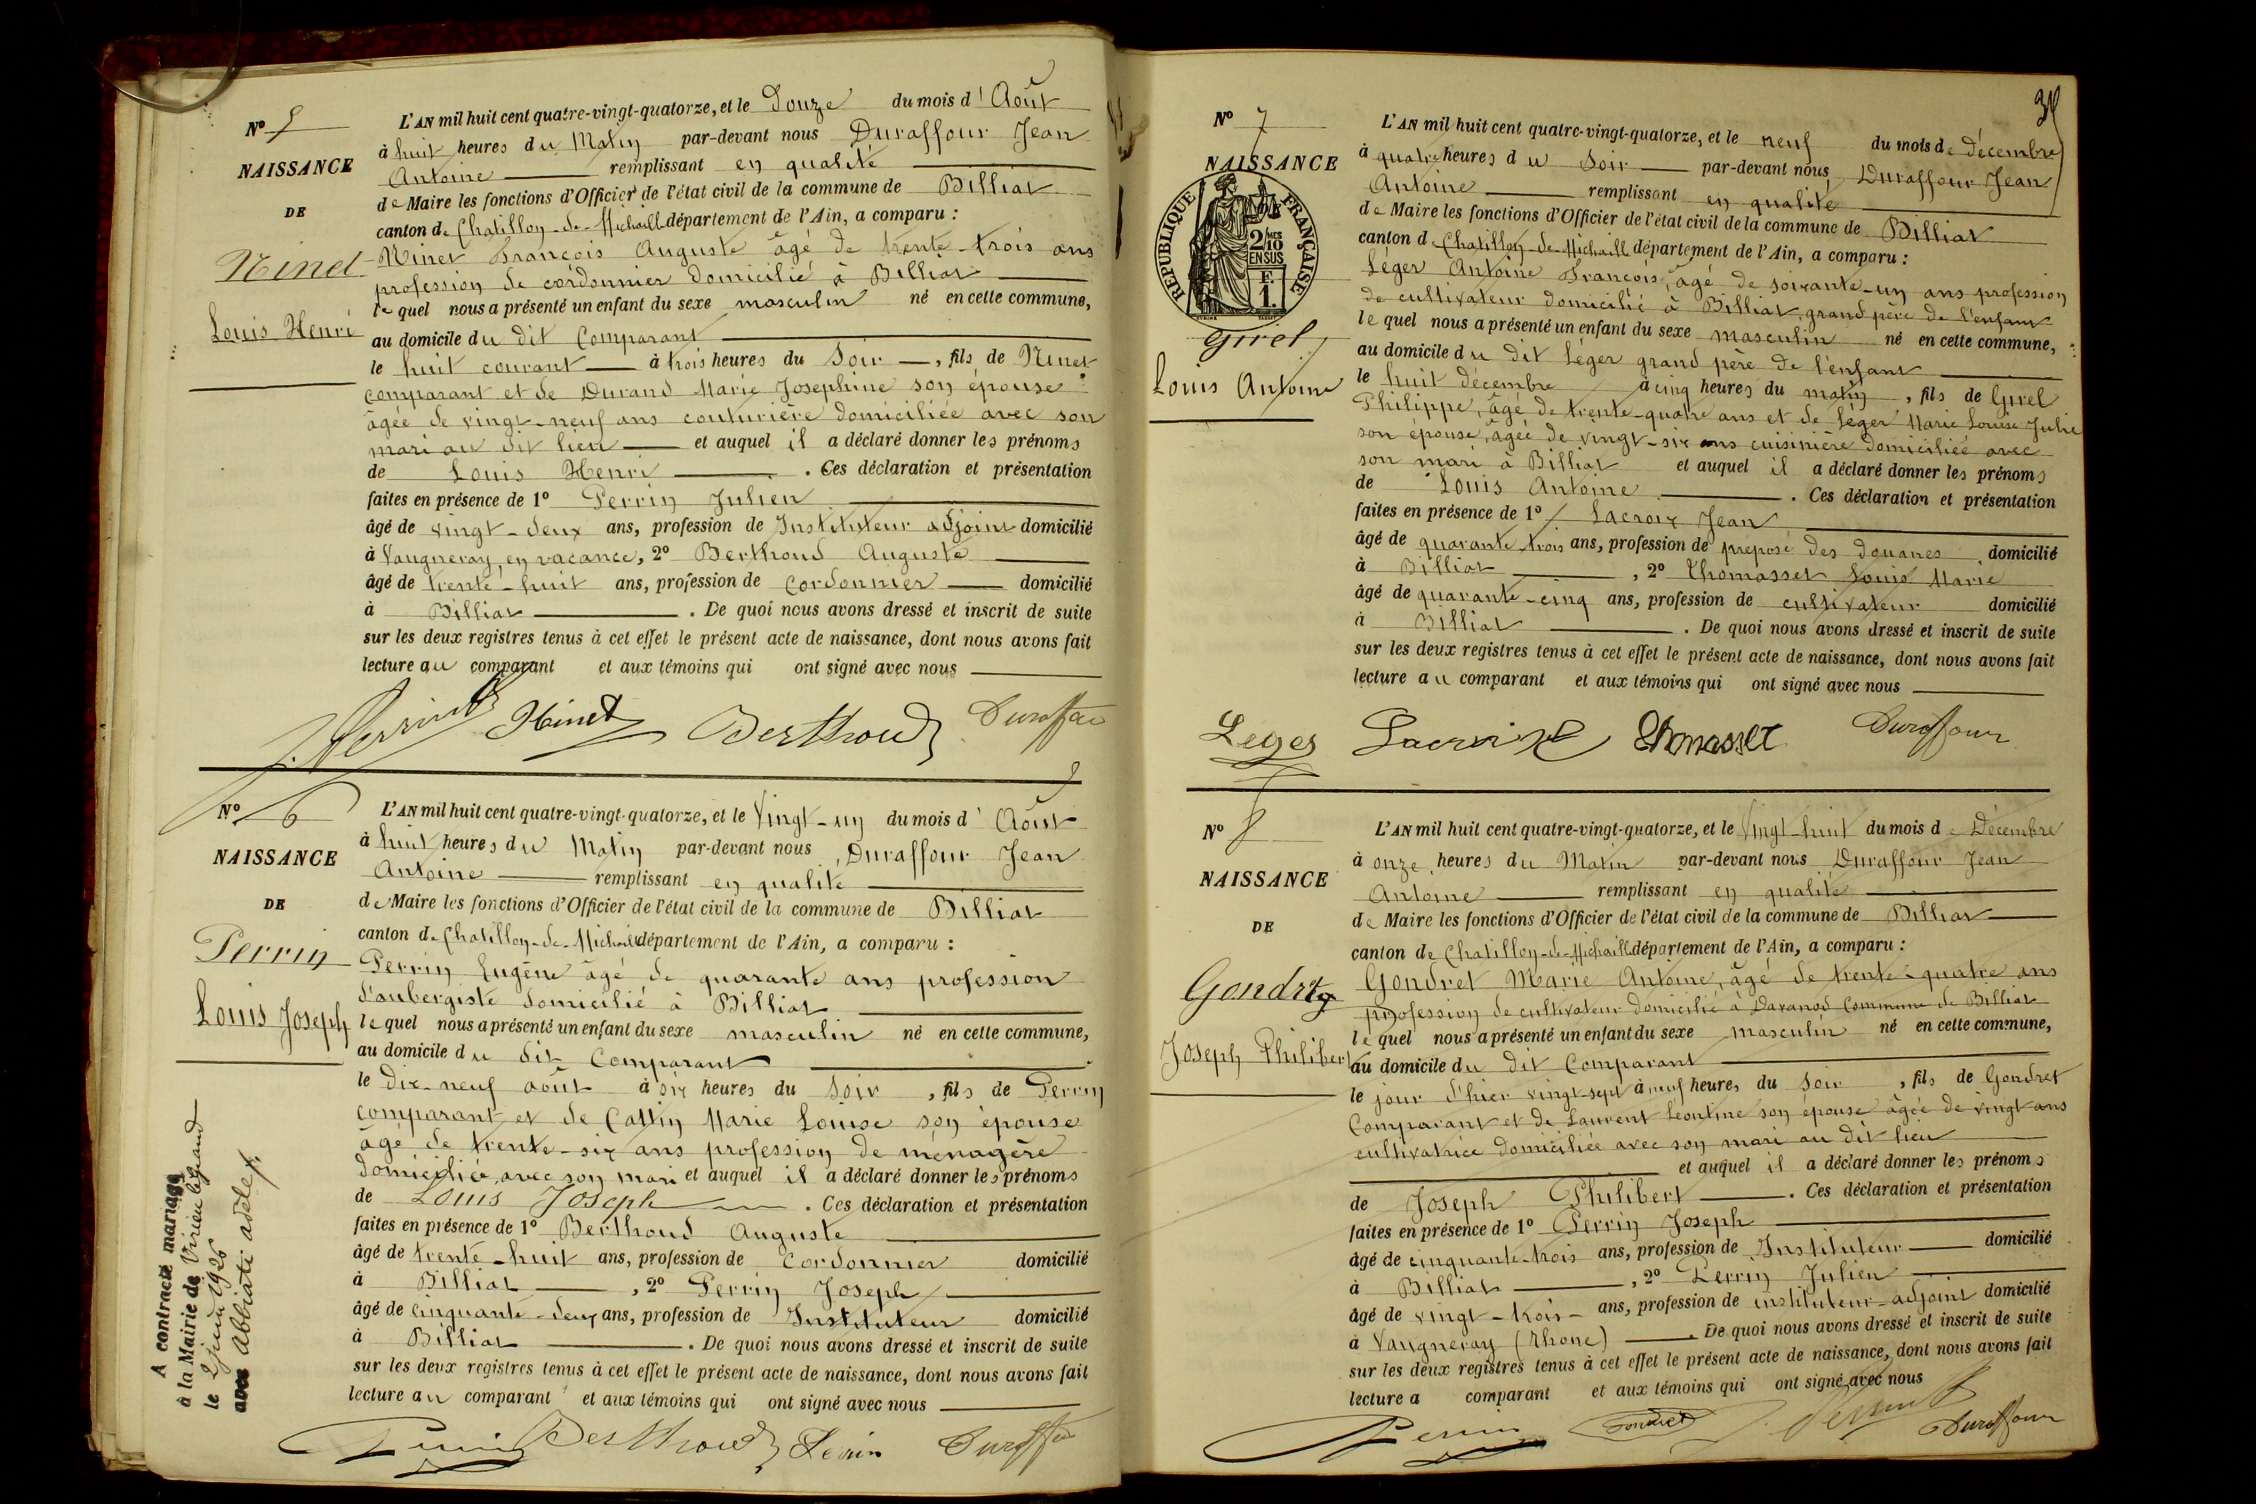 N° 5
NAISSANCE
DE
Ninet
Louis Henri
L'AN mil huit cent quatre-vingt-quatorze, et le Douze du mois d' Août
à huit heures du Matin par-devant nous Duraffour Jean
Antoine remplissant en qualité
de Maire les fonctions d'Officier de l'état civil de la commune de Billiat
canton de Chatillon-de-Michaille département de l'Ain, a comparu :
Ninet François Auguste âgé de trente-trois ans
profession de cordonnier domicilié à Billiat
lequel nous a présenté un enfant du sexe masculin né en cette commune,
au domicile du dit Comparant
le huit courant à trois heures du Soir, fils de Ninet
comparant et de Durand Marie Josephine son épouse
âgée de vingt-neuf ans couturière domiciliée avec son
mari au dit lieu et auquel il a déclaré donner les prénoms
de Louis Henri. Ces déclaration et présentation
faites en présence de 1° Perrin Julien
âgé de vingt-deux ans, profession de Instituteur adjoint domicilié
à Vaugneray, en vacance, 2° Berthoud Auguste
âgé de trente-huit ans, profession de Cordonnier domicilié
à Billiat. De quoi nous avons dressé et inscrit de suite
sur les deux registres tenus à cet effet le présent acte de naissance, dont nous avons fait
lecture au comparant et aux témoins qui ont signé avec nous
J. Perrin Ninet Berthoud Duraffour
N° 6
NAISSANCE
DE
Perrin
Louis Joseph
A contracté mariage
à la Mairie de Virieu le Grand
le 2 juin 1926
avec Abbiati adèle
L'AN mil huit cent quatre-vingt-quatorze, et le Vingt-un du mois d' Août
à huit heures du Matin par-devant nous Duraffour Jean
Antoine remplissant en qualité
de Maire les fonctions d'Officier de l'état civil de la commune de Billiat
canton de Chatillon-de-Michaille département de l'Ain, a comparu :
Perrin Eugène âgé de quarante ans profession
d'aubergiste domicilié à Billiat
lequel nous a présenté un enfant du sexe masculin né en cette commune,
au domicile du dit Comparant
le dix-neuf août à six heures du Soir, fils de Perrin
comparant et de Cattin Marie Louise son épouse
âgé de trente-six ans profession de ménagère
domiciliée avec son mari et auquel il a déclaré donner les prénoms
de Louis Joseph. Ces déclaration et présentation
faites en présence de 1° Berthoud Auguste
âgé de trente-huit ans, profession de Cordonnier domicilié
à Billiat, 2° Perrin Joseph
âgé de cinquante-deux ans, profession de Instituteur domicilié
à Billiat. De quoi nous avons dressé et inscrit de suite
sur les deux registres tenus à cet effet le présent acte de naissance, dont nous avons fait
lecture au comparant et aux témoins qui ont signé avec nous
Perrin Berthoud Perrin Duraffour
N° 7
NAISSANCE
RÉPUBLIQUE FRANÇAISE
2/10 MES
EN SUS
F.
1.
Girel
Louis Antoine
L'AN mil huit cent quatre-vingt-quatorze, et le neuf du mois de décembre
à quatre heures du Soir par-devant nous Duraffour Jean
Antoine remplissant en qualité
de Maire les fonctions d'Officier de l'état civil de la commune de Billiat
canton de Chatillon-de-Michaille département de l'Ain, a comparu :
Léger Antoine François, âgé de soixante-un ans profession
de cultivateur domicilié à Billiat, grand père de l'enfant
lequel nous a présenté un enfant du sexe masculin né en cette commune,
au domicile du dit Léger grand père de l'enfant
le huit décembre à cinq heures du matin, fils de Girel
Philippe, âgé de trente-quatre ans et de Léger Marie Louise Julie
son épouse, âgée de vingt-six ans cuisinière domiciliée avec
son mari à Billiat et auquel il a déclaré donner les prénoms
de Louis Antoine. Ces déclaration et présentation
faites en présence de 1° Lacroix Jean
âgé de quarante-trois ans, profession de préposé des douanes domicilié
à Billiat, 2° Thomasset Louis Marie
âgé de quarante-cinq ans, profession de cultivateur domicilié
à Billiat. De quoi nous avons dressé et inscrit de suite
sur les deux registres tenus à cet effet le présent acte de naissance, dont nous avons fait
lecture au comparant et aux témoins qui ont signé avec nous
Leger Lacroix Thomasset Duraffour
N° 8
NAISSANCE
DE
Gondret
Joseph Philibert
L'AN mil huit cent quatre-vingt-quatorze, et le Vingt-huit du mois de Décembre
à onze heures du Matin par-devant nous Duraffour Jean
Antoine remplissant en qualité
de Maire les fonctions d'Officier de l'état civil de la commune de Billiat
canton de Chatillon-de-Michaille département de l'Ain, a comparu :
Gondret Marie Antoine, âgé de trente-quatre ans
profession de cultivateur domicilié à Davanod Commune de Billiat
lequel nous a présenté un enfant du sexe masculin né en cette commune,
au domicile du dit Comparant
le jour d'hier vingt-sept à neuf heures du Soir, fils de Gondret
Comparant et de Laurent Léontine son épouse âgée de vingt ans
cultivatrice domiciliée avec son mari au dit lieu
et auquel il a déclaré donner les prénoms
de Joseph Philibert. Ces déclaration et présentation
faites en présence de 1° Perrin Joseph
âgé de cinquante-trois ans, profession de Instituteur domicilié
à Billiat, 2° Perrin Julien
âgé de vingt-trois ans, profession de instituteur-adjoint domicilié
à Vaugneray (Rhone). De quoi nous avons dressé et inscrit de suite
sur les deux registres tenus à cet effet le présent acte de naissance, dont nous avons fait
lecture a comparant et aux témoins qui ont signé avec nous
Perrin Gondret J. Perrin Duraffour